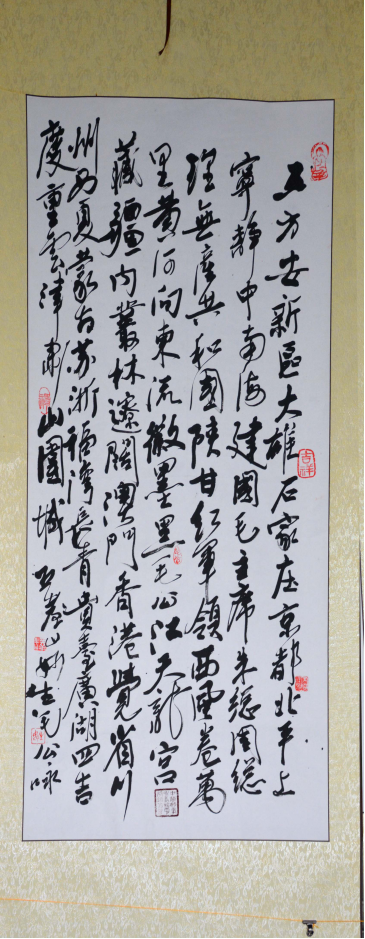 五方安新區大雄石家庄京都北平上
寧靜中南海建國毛主席朱總周總
理無產共和國陕甘紅軍領西風卷萬
里黄河向東流徽墨黑毛公江天龍宫
藏疆内叢林遼闊澳門香港覺省川
州西夏蒙古苏浙福湾長青貴臺廣湖四吉
慶重雲津 山圍城
吉祥